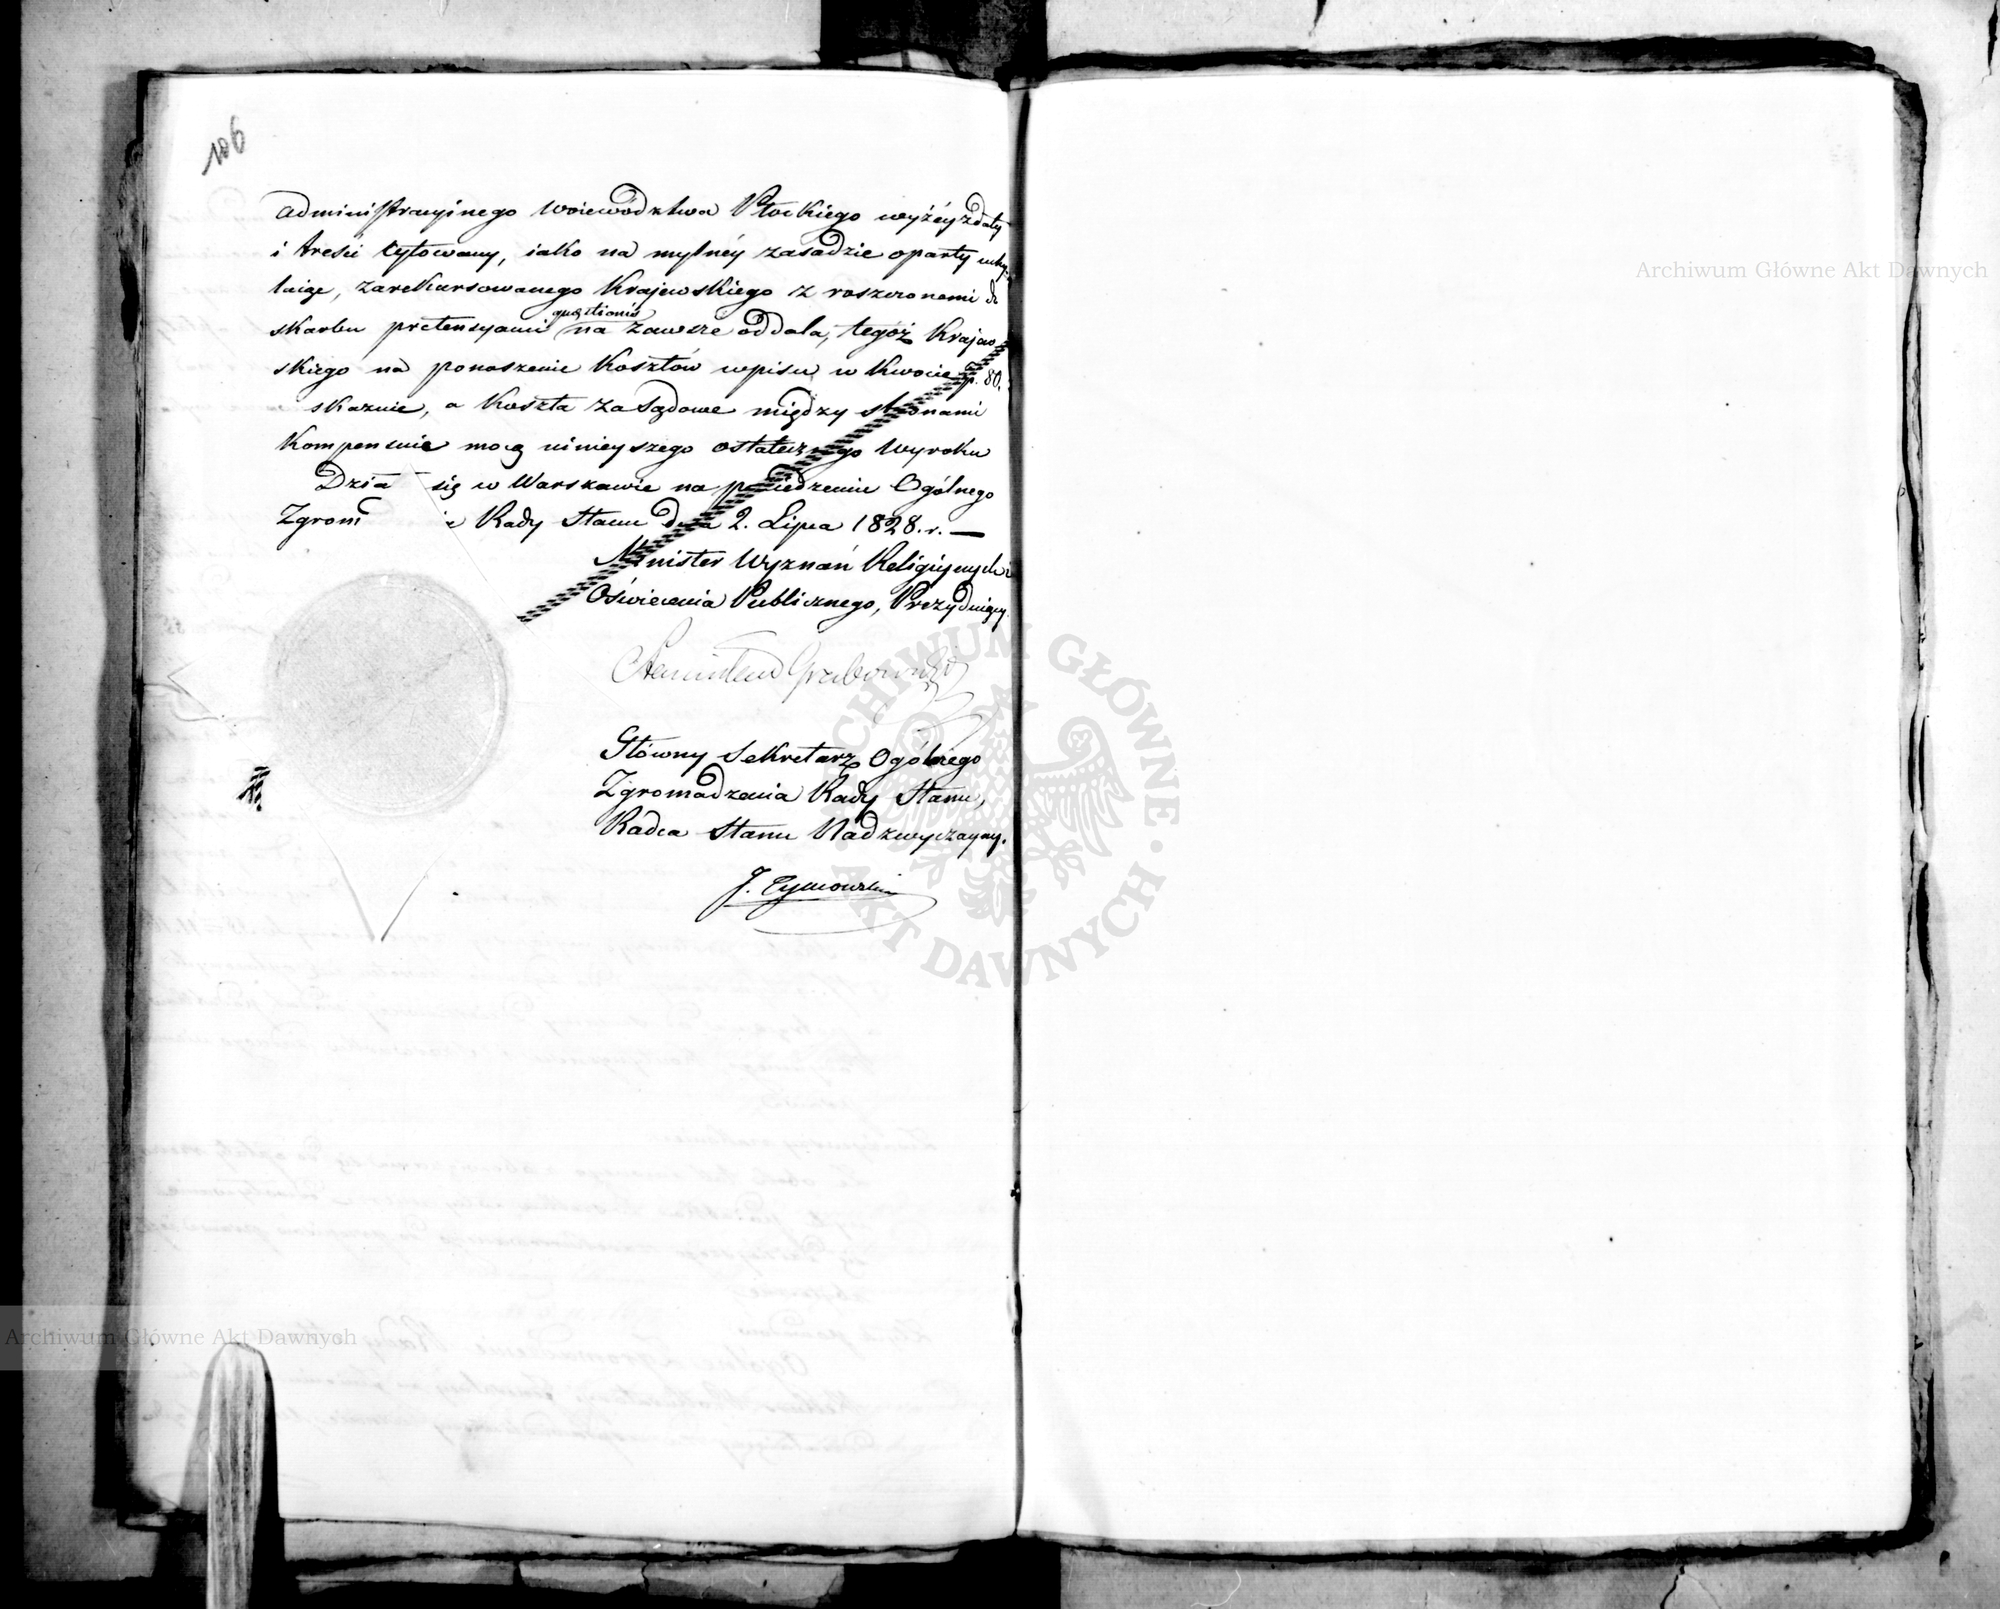 106
administracyinego Woiewództwa Płockiego wyżéy z daty
i treści cytowany, iako na mylnéy zasadzie oparty uchy-
laiąc, zarekursowanego Krajewskiego z roszczonemi do
skarbu pretensyami questionis na zawsze oddala, tegoż Krajew
skiego na ponoszenie Kosztów wpisu w Kwocie zp. 80.
skazuie, a Koszta zasądowe między stronami
Kompensuie mocą ninieyszego ostatecznego Wyroku
Dzia się w Warszawie na posiedzeniu Ogólnego
Zgrom Rady Stanu dnia 2. Lipca 1828. r. —
Minister Wyznań Religiynych i
Oświecenia Publicznego, Prezyduiący.
Stanisław Grabowski
Główny Sekretarz Ogólnego
Zgromadzenia Rady Stanu,
Radca Stanu Nadzwyczayny.
J. Tymowski
Archiwum Główne Akt Dawnych
ARCHIWUM GŁÓWNE · AKT DAWNYCH ·
Archiwum Główne Akt Dawnych